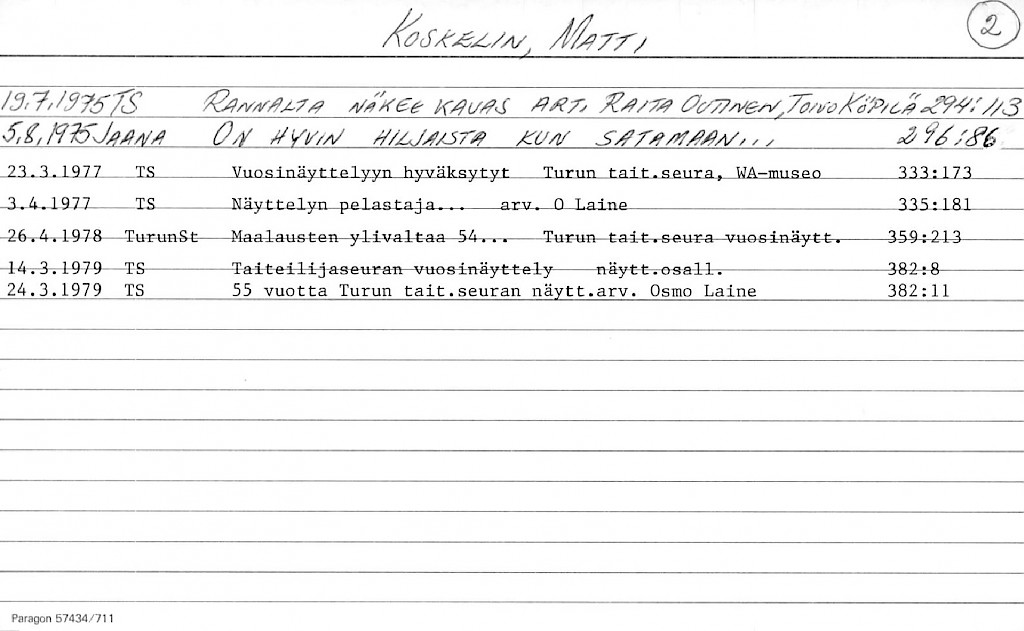 KOSKELIN, MATTI
2
19.7.1975 TS RANNALTA NÄKEE KAUAS ART. RAITA OUTINEN, TOIVO KÖPILÄ 294:113
5.8.1975 JAANA ON HYVIN HILJAISTA KUN SATAMAAN... 296:86
23.3.1977 TS Vuosinäyttelyyn hyväksytyt Turun tait.seura, WA-museo 333:173
3.4.1977 TS Näyttelyn pelastaja... arv. O Laine 335:181
26.4.1978 TurunSt Maalausten ylivaltaa 54... Turun tait.seura vuosinäytt. 359:213
14.3.1979 TS Taiteilijaseuran vuosinäyttely näytt.osall. 382:8
24.3.1979 TS 55 vuotta Turun tait.seuran näytt.arv. Osmo Laine 382:11
Paragon 57434/711